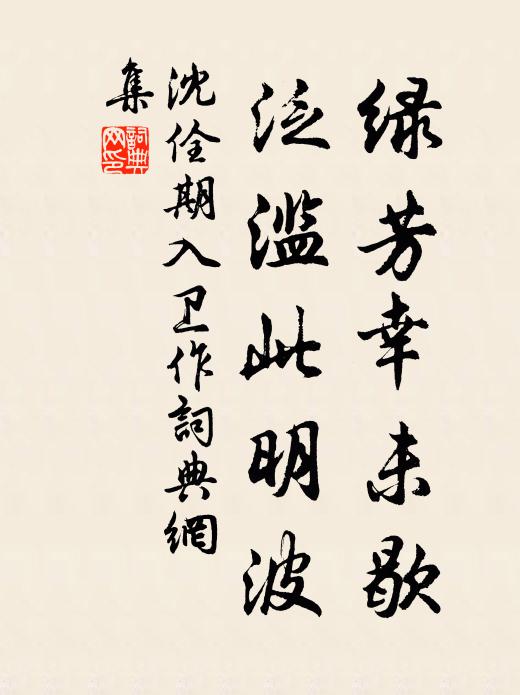 绿芳幸未歇
泛滥此明波
沈佺期入卫作詞典網
集
詞典網印